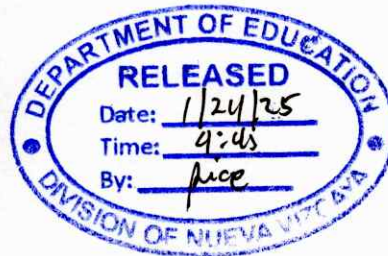 DEPARTMENT OF EDUCATION
RELEASED
Date: 1/24/25
Time:
By:
DIVISION OF NUEVA VIZCAYA